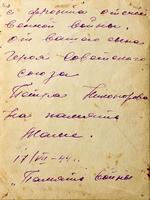 с фронта отечест
венной войны.
от вашего сына
Героя Советского
союза
Петра Никифорова
На память
Маме.
17/VII-44г.
"Память войны